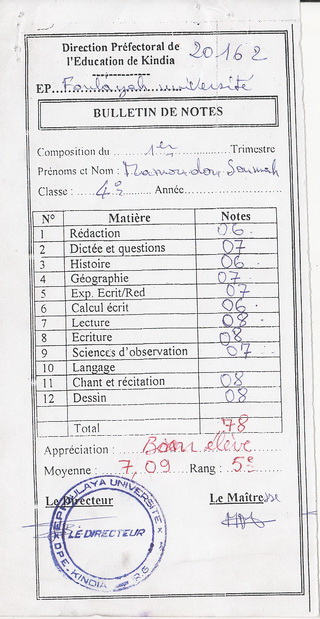 Direction Préfectoral de
l'Education de Kindia
20162
EP....Foulayah université
BULLETIN DE NOTES
Composition du ....1er.... Trimestre
Prénoms et Nom : Mamoudou Soumah
Classe : 4e Année
N° Matière Notes
1 Rédaction 06
2 Dictée et questions 07
3 Histoire 06
4 Géographie 07
5 Exp. Ecrit/Red 07
6 Calcul écrit 06
7 Lecture 08
8 Ecriture 08
9 Sciences d'observation 07
10 Langage
11 Chant et récitation 08
12 Dessin 08
Total 78
Appréciation : Bon élève
Moyenne : 7,09 Rang : 5e
Le Directeur Le Maître
LE DIRECTEUR
DPE-KINDIA
R.G